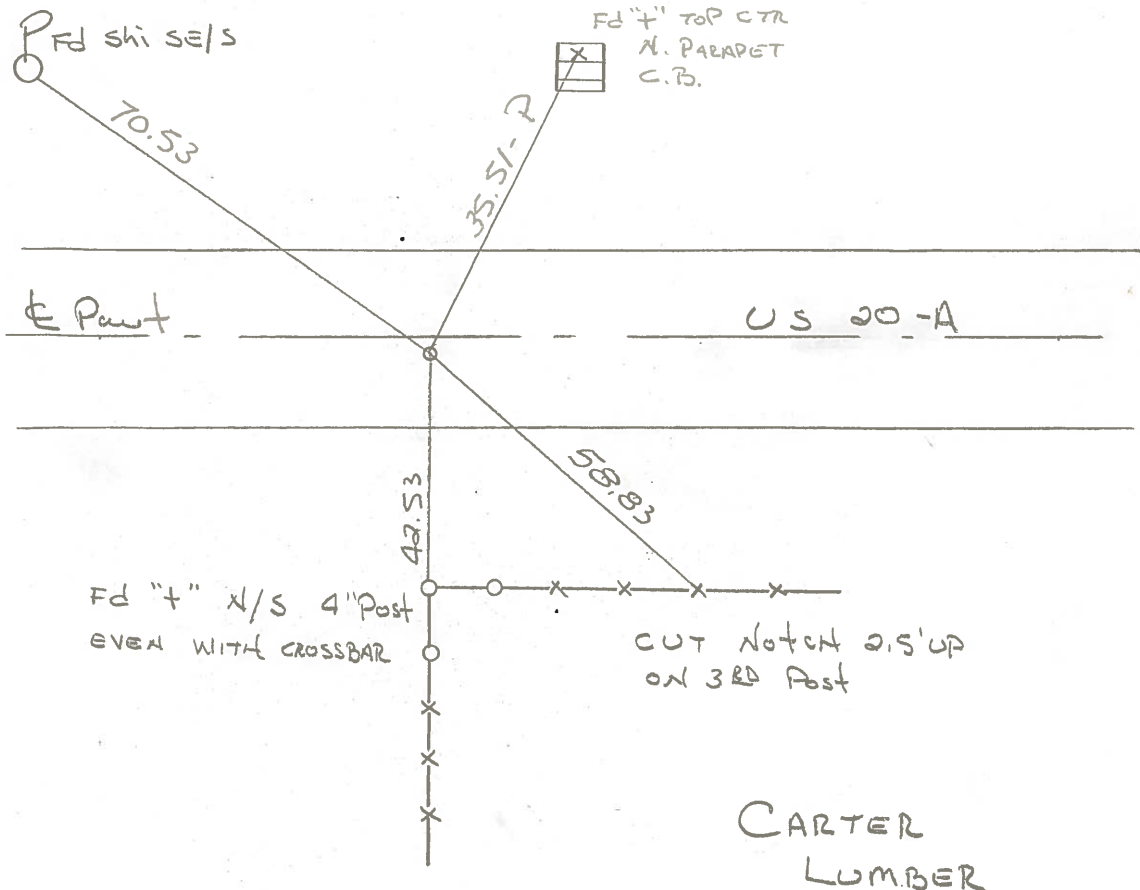 Fd shi SE/S
Fd "+" TOP CTR
N. PARAPET
C.B.
70.53
35.51-R
℄ Pavt
US 20-A
42.53
58.83
Fd "+" N/S 4" Post
EVEN WITH CROSSBAR
CUT NOTCH 2.5' UP
ON 3RD Post
CARTER
LUMBER